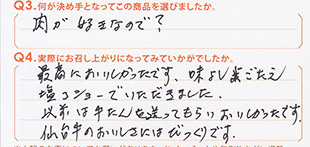 Q3.何が決め手となってこの商品を選びましたか。
肉が好きなので？
Q4.実際にお召し上がりになってみていかがでしたか。
最高においしかったです、味よし歯ごたえ
塩コショーでいただきました。
以前は牛たんを送ってもらいおいしかったです。
仙台牛のおいしさにはびっくりです。